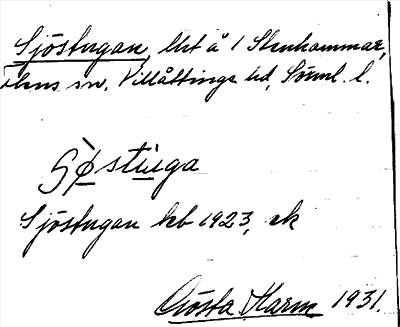 Sjöstugan, lht å 1 Stenhammar,
Flens sn, Villåttinge hd, Sörml. l.
Sjöstuga
Sjöstugan kb 1923, ek
Gösta Karm 1931.